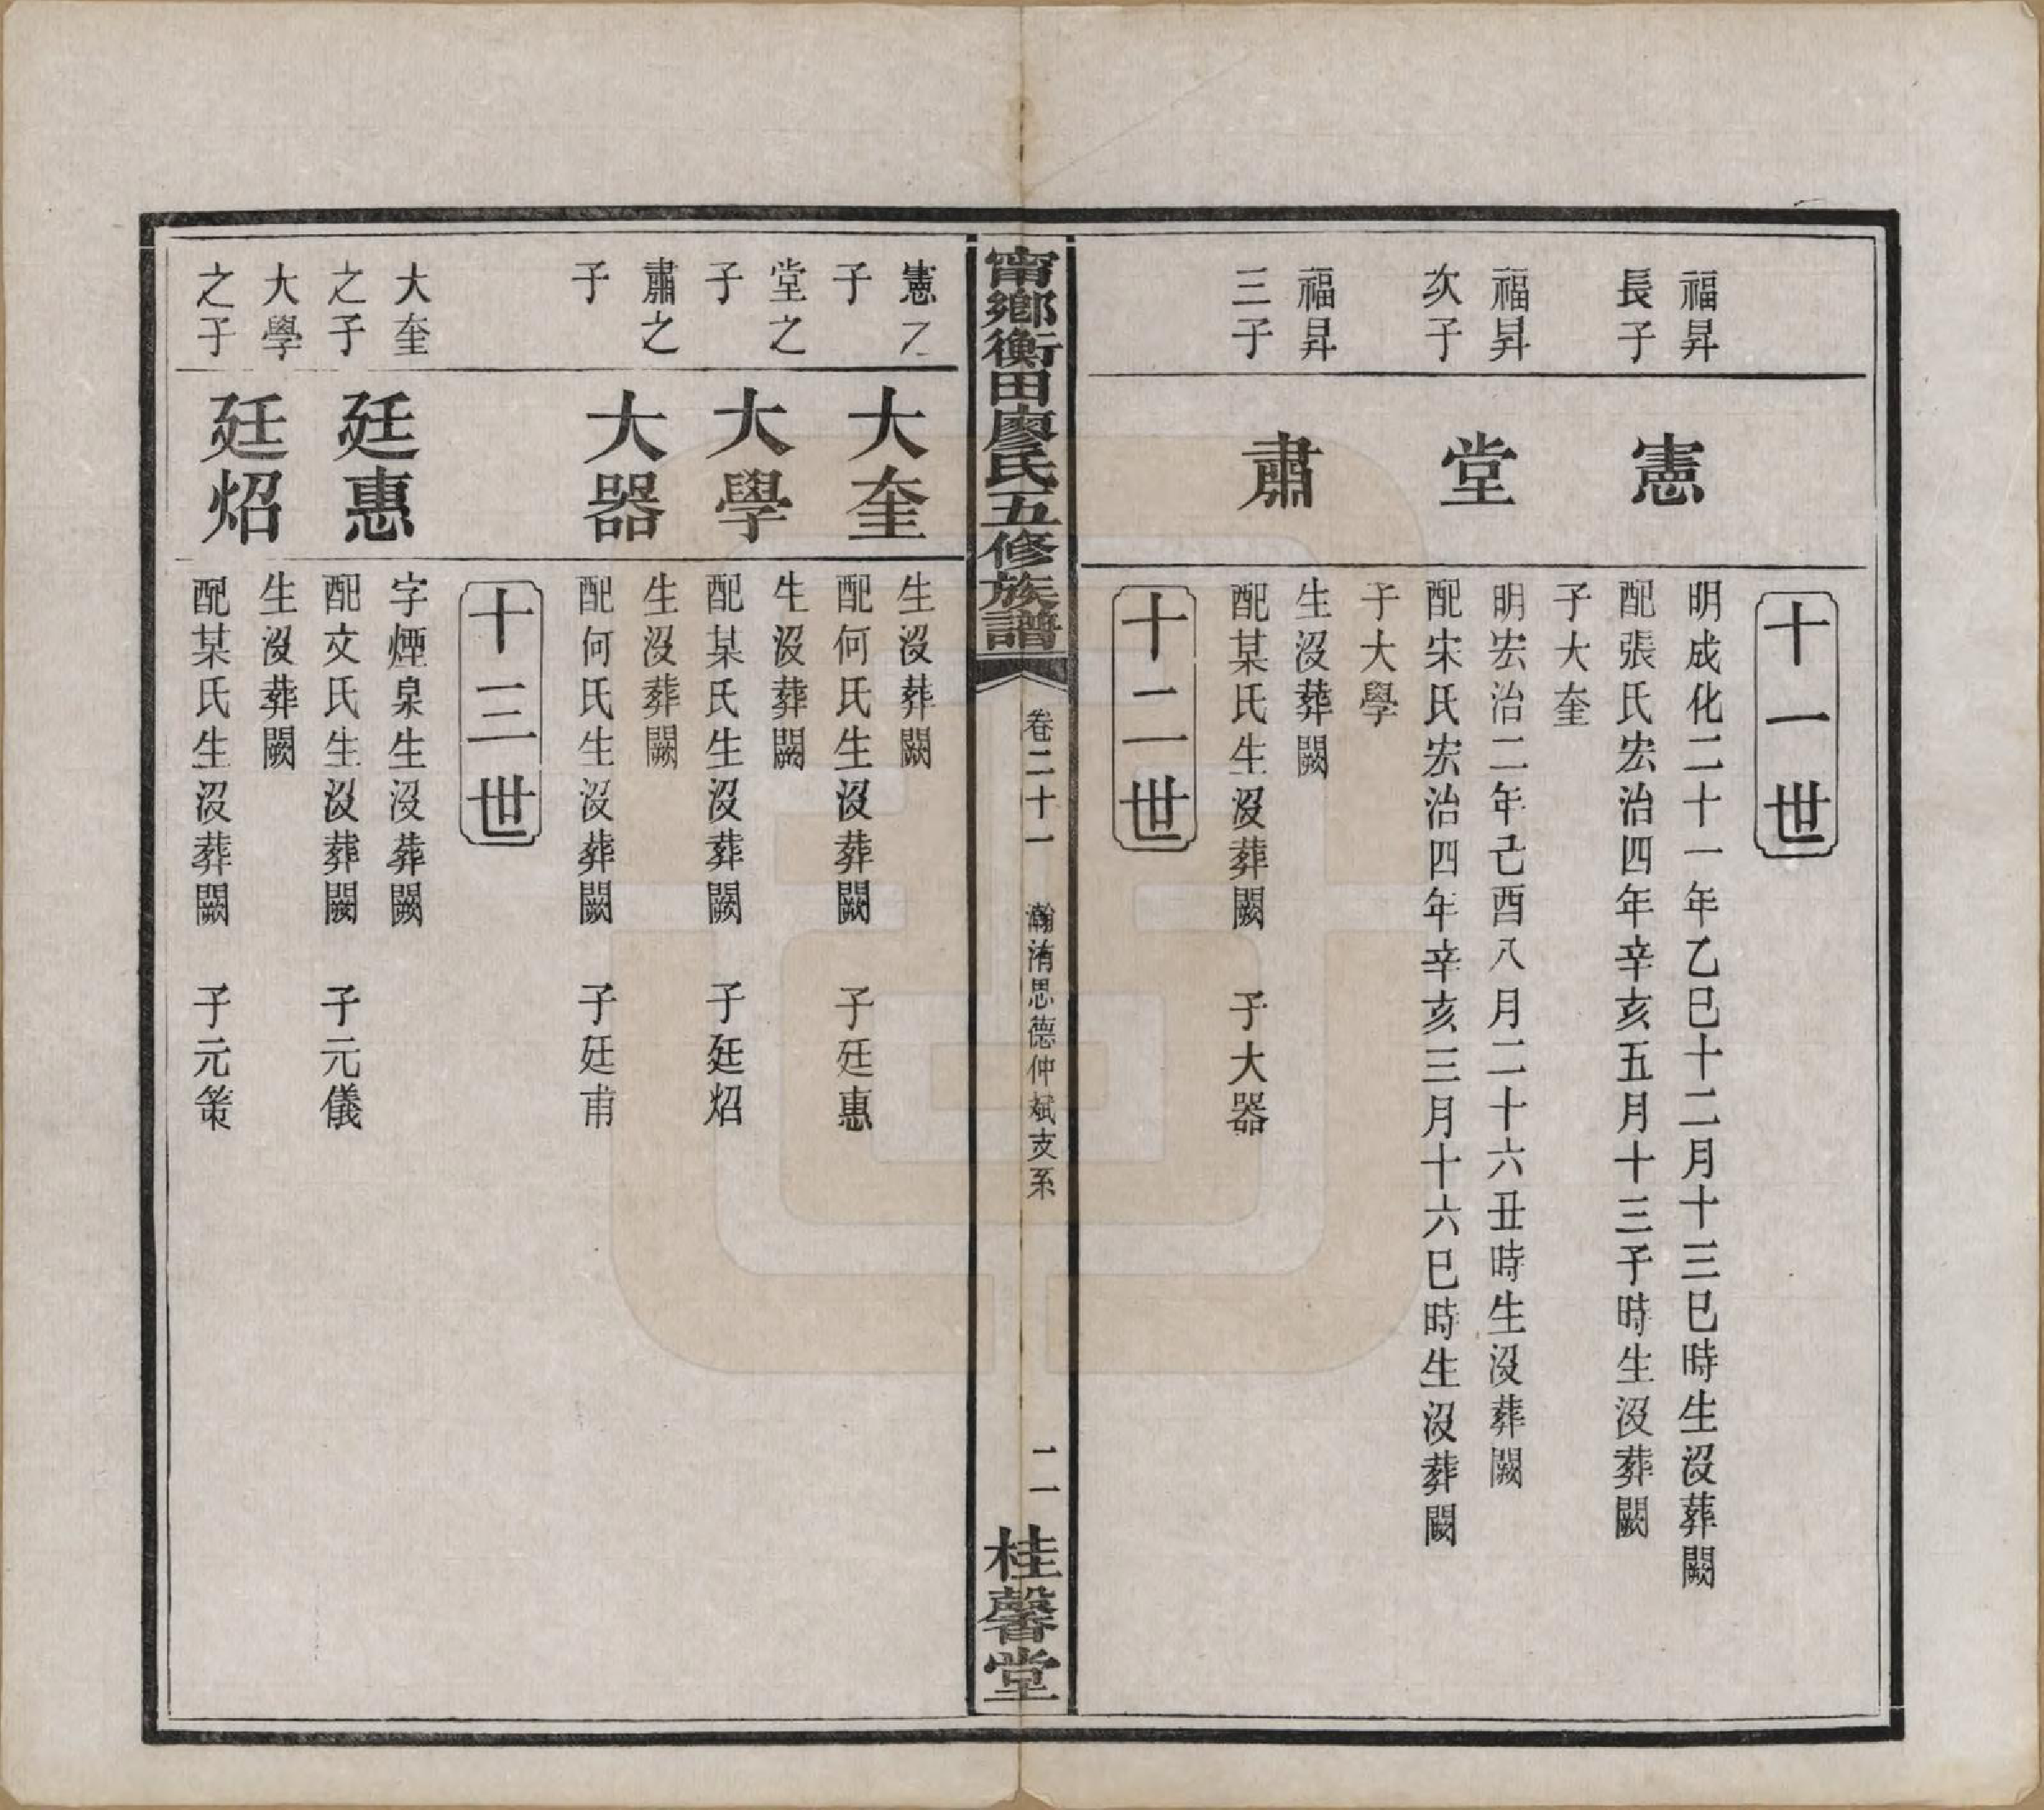 十一世
福昇
長子
憲
明成化二十一年乙巳十二月十三巳時生沒葬闕
配張氏宏治四年辛亥五月十三子時生沒葬闕
子大奎
福昇
次子
堂
明宏治二年己酉八月二十六丑時生沒葬闕
配宋氏宏治四年辛亥三月十六巳時生沒葬闕
子大學
福昇
三子
肅
生沒葬闕
配某氏生沒葬闕　子大器
十二世
甯鄉衡田廖氏五修族譜
卷二十一　瀚淯思德仲斌支系
二
桂馨堂
憲之
子
大奎
生沒葬闕
配何氏生沒葬闕　子廷惠
堂之
子
大學
生沒葬闕
配某氏生沒葬闕　子廷炤
肅之
子
大器
生沒葬闕
配何氏生沒葬闕　子廷甫
十三世
大奎
之子
廷惠
字煙泉生沒葬闕
配文氏生沒葬闕　子元儀
大學
之子
廷炤
生沒葬闕
配某氏生沒葬闕　子元策